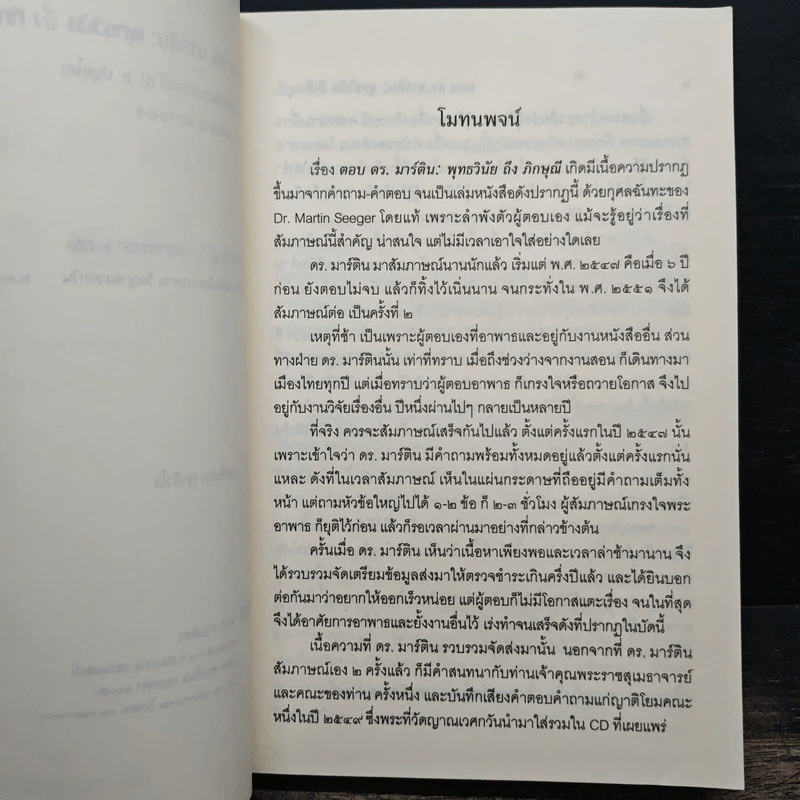 โมทนพจน์
เรื่อง ตอบ ดร. มาร์ติน: พุทธวินัย ถึง ภิกษุณี เกิดมีเนื้อความปรากฏ
ขึ้นมาจากคำถาม-คำตอบ จนเป็นเล่มหนังสือดังปรากฏนี้ ด้วยกุศลฉันทะของ
Dr. Martin Seeger โดยแท้ เพราะลำพังตัวผู้ตอบเอง แม้จะรู้อยู่ว่าเรื่องที่
สัมภาษณ์นี้สำคัญ น่าสนใจ แต่ไม่มีเวลาเอาใจใส่อย่างใดเลย
ดร. มาร์ติน มาสัมภาษณ์นานนักแล้ว เริ่มแต่ พ.ศ. ๒๕๔๗ คือเมื่อ ๖ ปี
ก่อน ยังตอบไม่จบ แล้วก็ทิ้งไว้เนิ่นนาน จนกระทั่งใน พ.ศ. ๒๕๕๑ จึงได้
สัมภาษณ์ต่อ เป็นครั้งที่ ๒
เหตุที่ช้า เป็นเพราะผู้ตอบเองที่อาพาธและอยู่กับงานหนังสืออื่น ส่วน
ทางฝ่าย ดร. มาร์ตินนั้น เท่าที่ทราบ เมื่อถึงช่วงว่างจากงานสอน ก็เดินทางมา
เมืองไทยทุกปี แต่เมื่อทราบว่าผู้ตอบอาพาธ ก็เกรงใจหรือถวายโอกาส จึงไป
อยู่กับงานวิจัยเรื่องอื่น ปีหนึ่งผ่านไปๆ กลายเป็นหลายปี
ที่จริง ควรจะสัมภาษณ์เสร็จกันไปแล้ว ตั้งแต่ครั้งแรกในปี ๒๕๔๗ นั้น
เพราะเข้าใจว่า ดร. มาร์ติน มีคำถามพร้อมทั้งหมดอยู่แล้วตั้งแต่ครั้งแรกนั่น
แหละ ดังที่ในเวลาสัมภาษณ์ เห็นในแผ่นกระดาษที่ถืออยู่มีคำถามเต็มทั้ง
หน้า แต่ถามหัวข้อใหญ่ไปได้ ๑-๒ ข้อ ก็ ๒-๓ ชั่วโมง ผู้สัมภาษณ์เกรงใจพระ
อาพาธ ก็ยุติไว้ก่อน แล้วก็รอเวลาผ่านมาอย่างที่กล่าวข้างต้น
ครั้นเมื่อ ดร. มาร์ติน เห็นว่าเนื้อหาเพียงพอและเวลาล่าช้ามานาน จึง
ได้รวบรวมจัดเตรียมข้อมูลส่งมาให้ตรวจชำระเกินครึ่งปีแล้ว และได้ยินบอก
ต่อกันมาว่าอยากให้ออกเร็วหน่อย แต่ผู้ตอบก็ไม่มีโอกาสแตะเรื่อง จนในที่สุด
จึงได้อาศัยการอาพาธและยั้งงานอื่นไว้ เร่งทำจนเสร็จดังที่ปรากฏในบัดนี้
เนื้อความที่ ดร. มาร์ติน รวบรวมจัดส่งมานั้น นอกจากที่ ดร. มาร์ติน
สัมภาษณ์เอง ๒ ครั้งแล้ว ก็มีคำสนทนากับท่านเจ้าคุณพระราชสุเมธาจารย์
และคณะของท่าน ครั้งหนึ่ง และบันทึกเสียงคำตอบคำถามแก่ญาติโยมคณะ
หนึ่งในปี ๒๕๔๙ ซึ่งพระที่วัดญาณเวศกวันนำมาใส่รวมใน CD ที่เผยแพร่